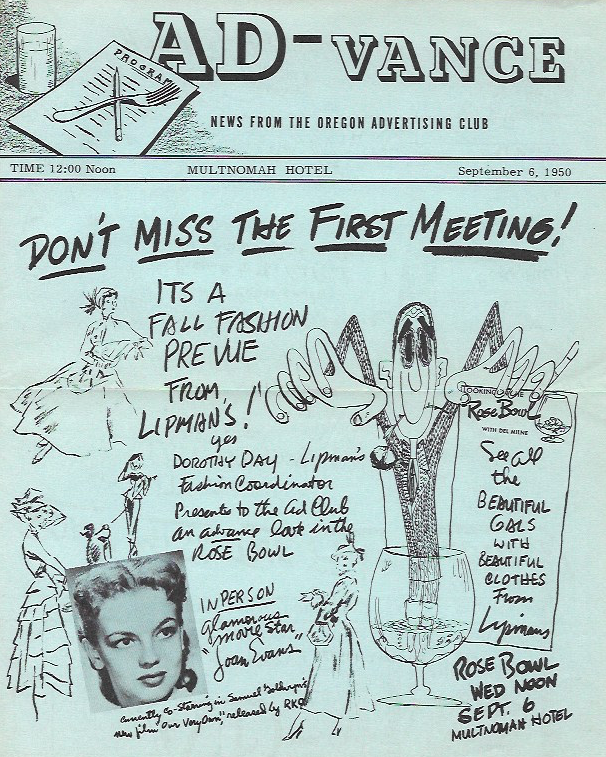 AD-VANCE
PROGRAM
NEWS FROM THE OREGON ADVERTISING CLUB
TIME 12:00 Noon
MULTNOMAH HOTEL
September 6, 1950
DON'T MISS THE FIRST MEETING!
ITS A
FALL FASHION
PREVUE
FROM
LIPMAN'S!
yes
DOROTHY DAY - Lipman's
Fashion Coordinator
Presents to the Ad Club
an advance look in the
ROSE BOWL
IN PERSON
glamorous
movie star
"Joan Evans"
currently Co-Starring in Samuel Goldwyn's
new film "Our Very Own," released by RKO
LOOKING THE
Rose Bowl
WITH DEL MILNE
See all
the
BEAUTIFUL
GALS
WITH
BEAUTIFUL
CLOTHES
From
Lipmans
ROSE BOWL
WED NOON
SEPT. 6
MULTNOMAH HOTEL